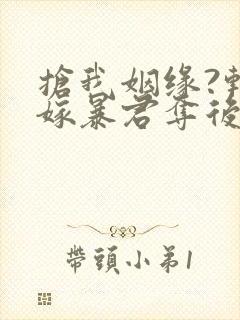 搶我姻缘?轉
嫁暴君奪後
帶頭小弟1